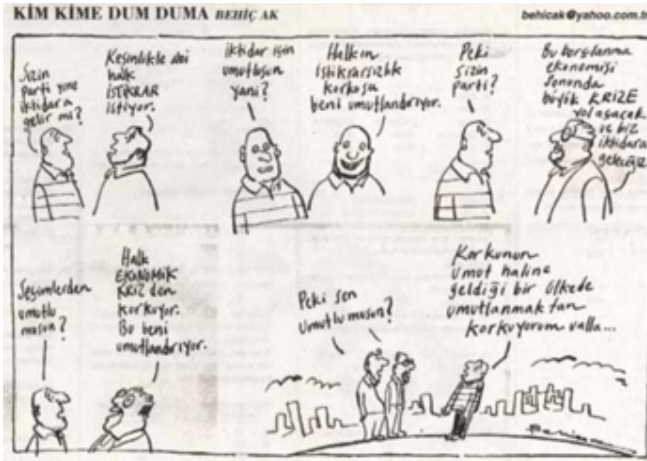 KİM KİME DUM DUMA BEHİÇ AK
behicak@yahoo.com.t
Sizin
parti yine
iktidara
gelir mi?
Kesinlikle abi
halk
İSTİKRAR
istiyor.
iktidar için
umutlusun
yani?
Halkın
istikrarsızlık
korkusu
beni umutlandırıyor.
Peki
sizin
parti?
Bu borçlanma
ekonomisi
sonunda
büyük KRİZE
yol açacak
ve biz
iktidara
geleceğiz
Seçimlerden
umutlu
musun?
Halk
EKONOMİK
KRİZ'den
korkuyor.
Bu beni
umutlandırıyor.
Peki sen
umutlu musun?
Korkunun
umut haline
geldiği bir ülkede
umutlanmaktan
korkuyorum valla...